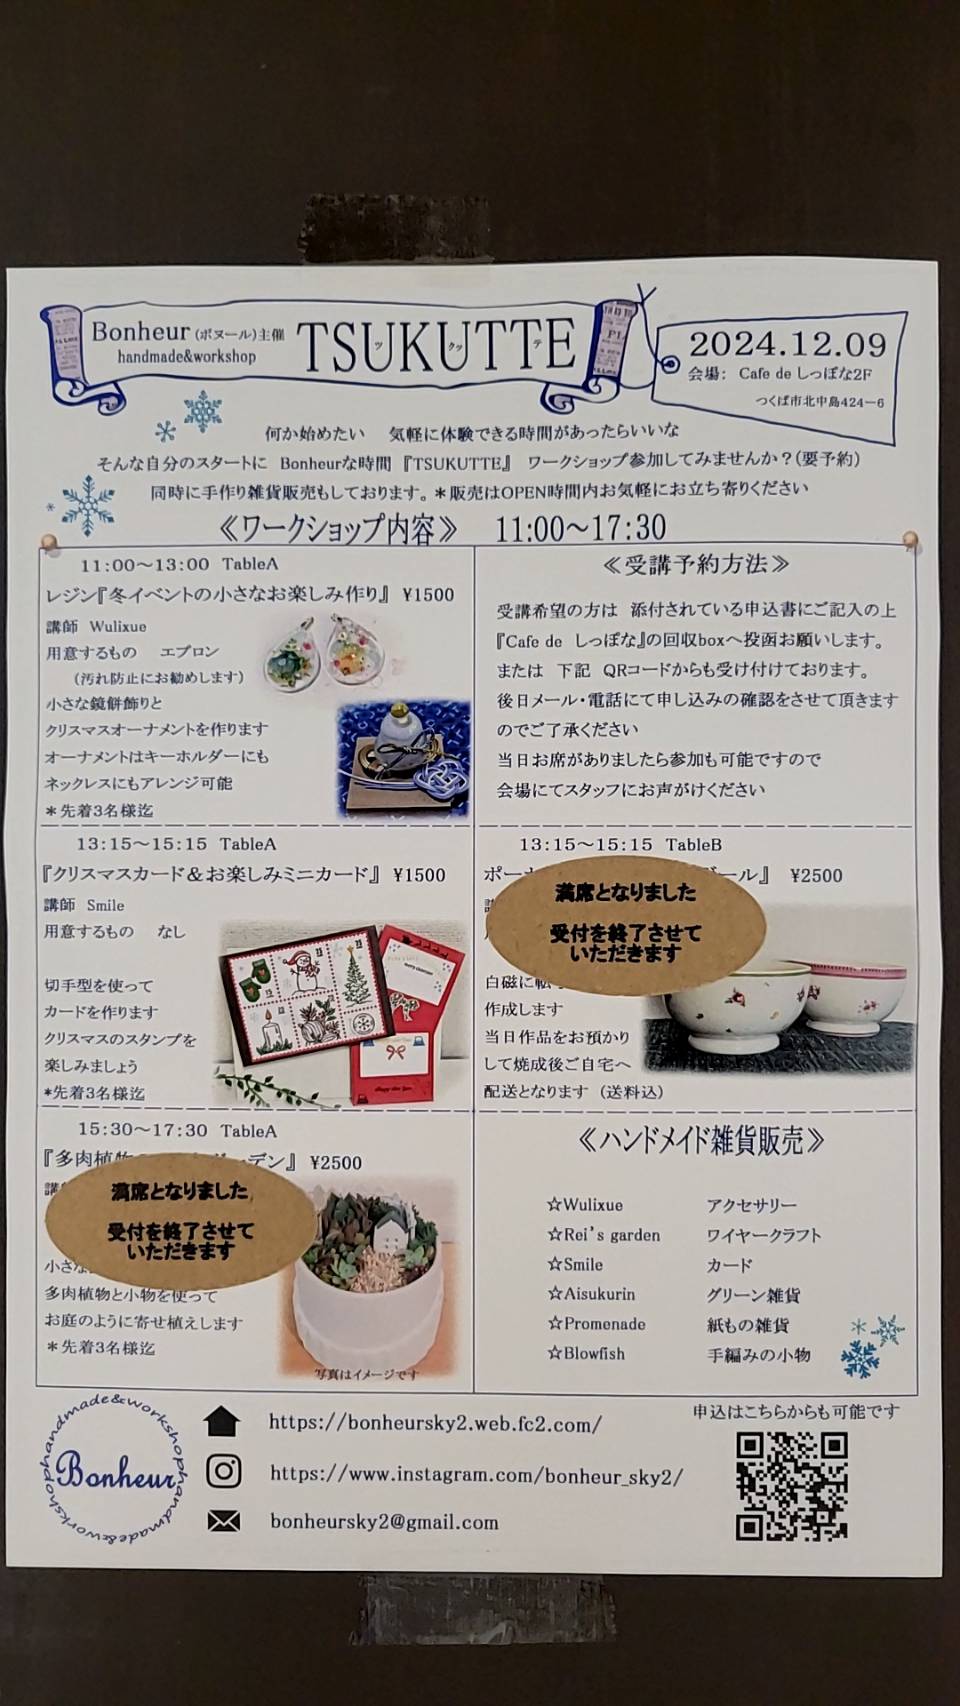 Bonheur (ボヌール)主催
handmade&workshop
TSUKUTTE
ツ ク ッ テ
2024.12.09
会場: Cafe de しっぽな2F
つくば市北中島424-6
何か始めたい 気軽に体験できる時間があったらいいな
そんな自分のスタートに Bonheurな時間 『TSUKUTTE』 ワークショップ参加してみませんか?(要予約)
同時に手作り雑貨販売もしております。*販売はOPEN時間内お気軽にお立ち寄りください
≪ワークショップ内容≫ 11:00～17:30
11:00～13:00 TableA
レジン『冬イベントの小さなお楽しみ作り』 ¥1500
講師 Wulixue
用意するもの エプロン
(汚れ防止にお勧めします)
小さな鏡餅飾りと
クリスマスオーナメントを作ります
オーナメントはキーホルダーにも
ネックレスにもアレンジ可能
*先着3名様迄
≪受講予約方法≫
受講希望の方は 添付されている申込書にご記入の上
『Cafe de しっぽな』の回収boxへ投函お願いします。
または 下記 QRコードからも受け付けております。
後日メール・電話にて申し込みの確認をさせて頂きます
のでご了承ください
当日お席がありましたら参加も可能ですので
会場にてスタッフにお声がけください
13:15～15:15 TableA
『クリスマスカード&お楽しみミニカード』 ¥1500
講師 Smile
用意するもの なし
切手型を使って
カードを作ります
クリスマスのスタンプを
楽しみましょう
*先着3名様迄
13:15～15:15 TableB
ール』 ¥2500
満席となりました
受付を終了させて
いただきます
白磁に
作成します
当日作品をお預かり
して焼成後ご自宅へ
配送となります (送料込)
15:30～17:30 TableA
『多肉植物 デン』 ¥2500
満席となりました
受付を終了させて
いただきます
小さな
多肉植物と小物を使って
お庭のように寄せ植えします
*先着3名様迄
写真はイメージです
≪ハンドメイド雑貨販売≫
☆Wulixue アクセサリー
☆Rei's garden ワイヤークラフト
☆Smile カード
☆Aisukurin グリーン雑貨
☆Promenade 紙もの雑貨
☆Blowfish 手編みの小物
handmade&workshop handmade&workshop
Bonheur
https://bonheursky2.web.fc2.com/
https://www.instagram.com/bonheur_sky2/
bonheursky2@gmail.com
申込はこちらからも可能です